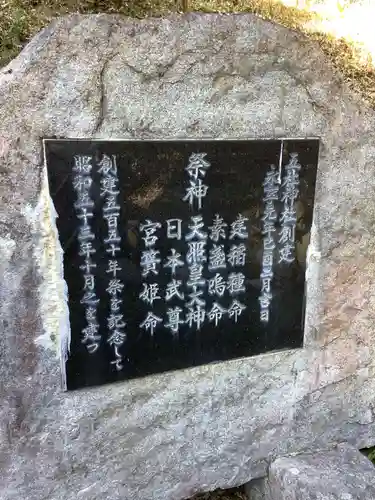 五社神社創建
永享元年己酉二月吉日
建稲種命
素盞嗚命
祭神 天照皇大神
日本武尊
宮簀姫命
創建五百五十年祭を記念して
昭和五十三年十月之を建つ